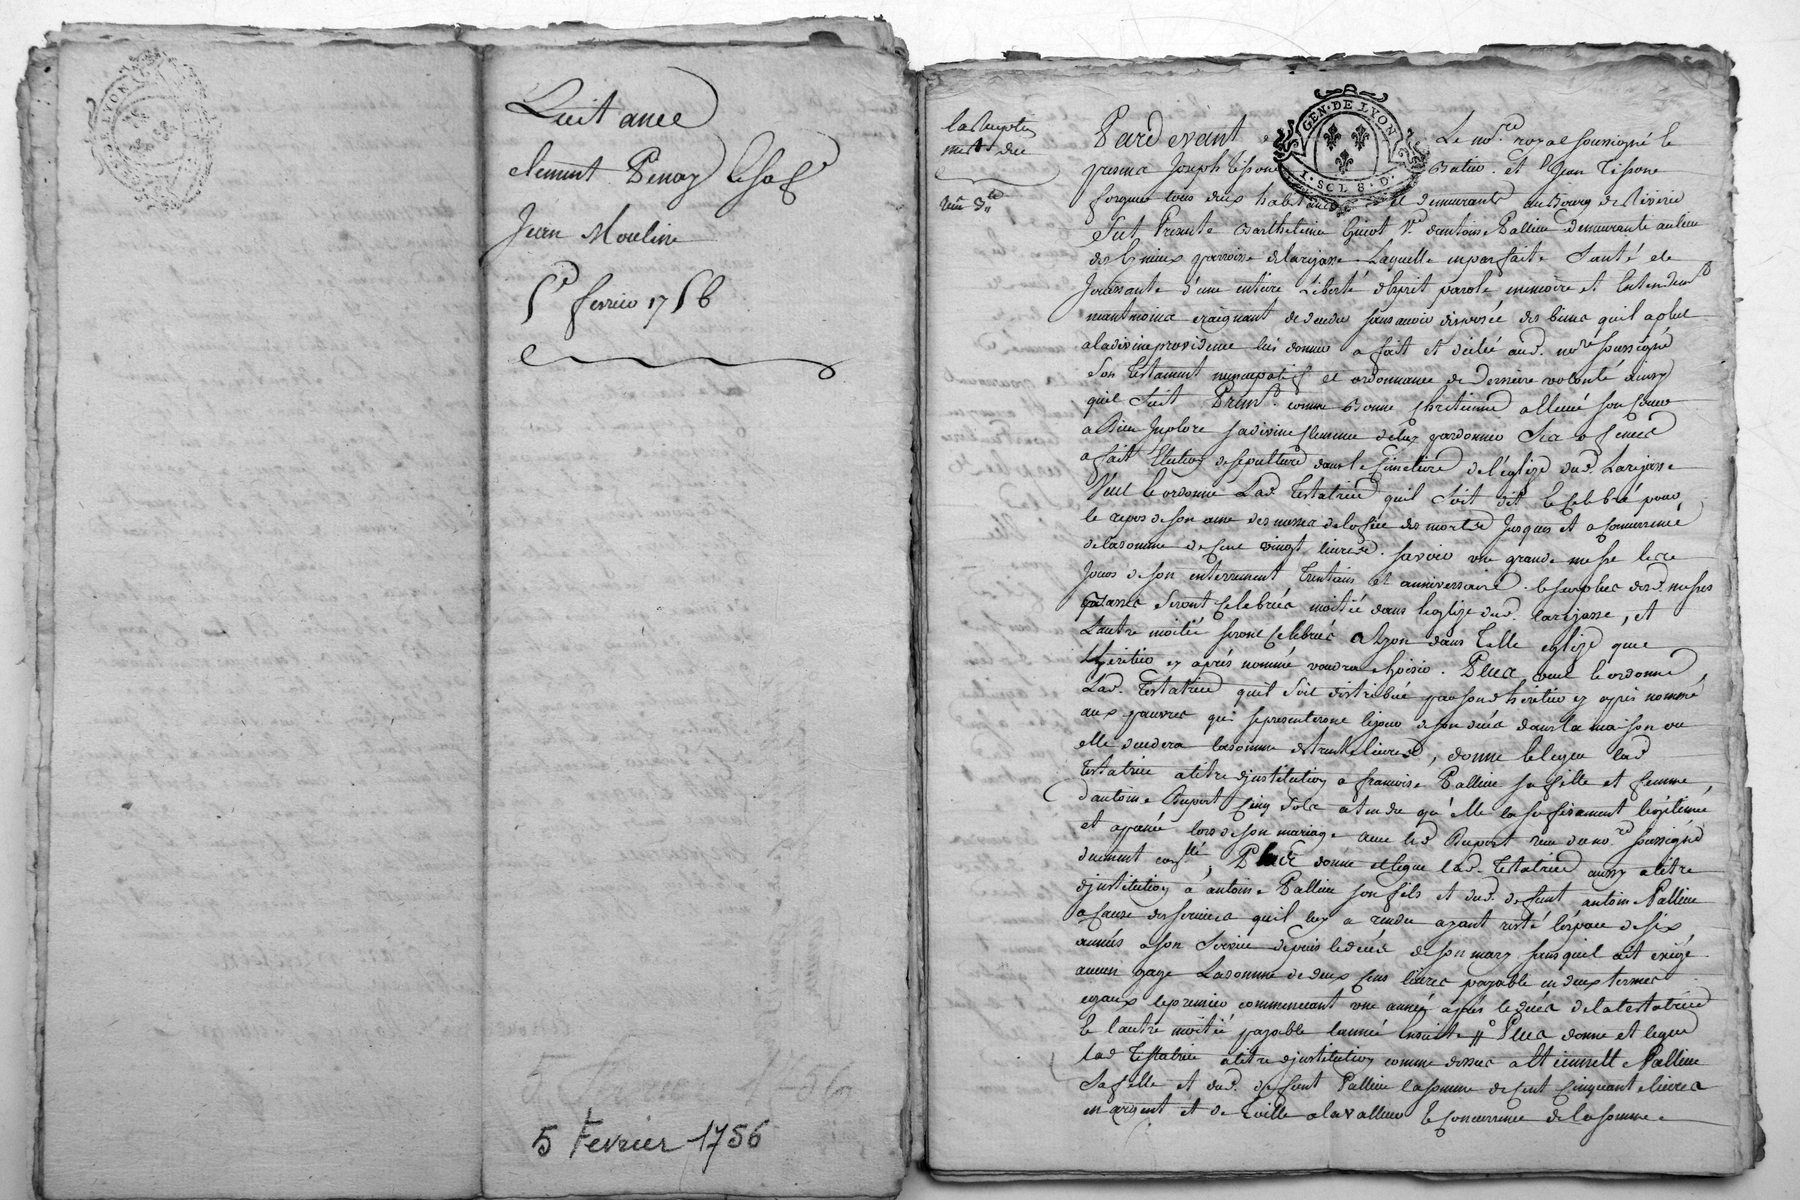 DE LYON
Quittance
clement Penay
Jean Moulin
5e fevrier 1756
5 Fevrier 1756
5 Fevrier 1756
GEN. DE LYON
1. SOL 8. D.
Pardevant Le nore royal soussigné le
presens Joseph Tissone Jean Tissone
forgeur tous deux habitans et demeurants au Bourg de Riverie
fut Presente Barthelemie Guiot Ve d'antoine Pallieu demeurante au lieu
des paroisse de larajasse Laquelle en parfaite Santé et
Jouissante d'une entiere Liberté desprit parole memoire et Entendem
neantmoins craignant de deceder sans avoir disposée des biens quil a plut
a la divine providence lui donner a fait et dicté aud. nore soussigné
Son Testament nuncupatif et ordonnance de Derniere volonté ainsy
quil Suit Premt comme Bonne chretienne a elevé son Coeur
a Dieu Inploré sa divine Clemence de luy pardonner Ses offences
a fait Election de sepulture dans le Cimetiere de l'eglize dud. Larajasse
Veut & ordonne Lad. Testatrice quil Soit dit & Celebré pour
le repos de son ame des messes de lofice des morts Jusques et a concurrence
de la somme de Cent vingt livres. savoir une grande messe les
Jours de son enterrement Trentain et anniversaire. le surplus desd. messes
basses Seront Celebrées moitié dans leglize dud. larajasse, et
Lautre moitié seront Celebrées a Lyon dans Telle eglize que
Lheritier cy aprés nommé voudra choisir. Plus veut & ordonne
Lad. Testatrice quil Soit distribué par sond heritier cy aprés nommé
aux pauvres qui se presenteront le jour de son decés dans la maison ou
elle decedera la somme de trente livres, donne & legue lad
Testatrice a titre dinstitution a francoise Pallieu sa fille et femme
d'antoine Dupont Cinq Sols atendu qu'elle la sufisamment legitimée
et apanée lors de son mariage avec led Dupont receu dud no.re soussigné
duement conllé, Plus donne et legue lad. Testatrice aussy a titre
dinstitution à antoine Pallieu son fils et dud. defunt antoine Pallieu
a Cause des services quil luy a rendu ayant resté lespace de six
années a son Service depuis le decés de son mary sans quil ait exigé
aucun gage La somme de deux Cens livres payable en deux termes
egaux le premier commencant une année aprés le decés de la testatrice
& lautre moitié payable lannée ensuite Plus donne et legue
lad Testatrice a titre dinstitution comme dessus a Pallieu
Sa fille et dud. defunt Pallieu la somme de Cent Cinquante livres
en argent et de Toille a la valleur & concurrence de la somme